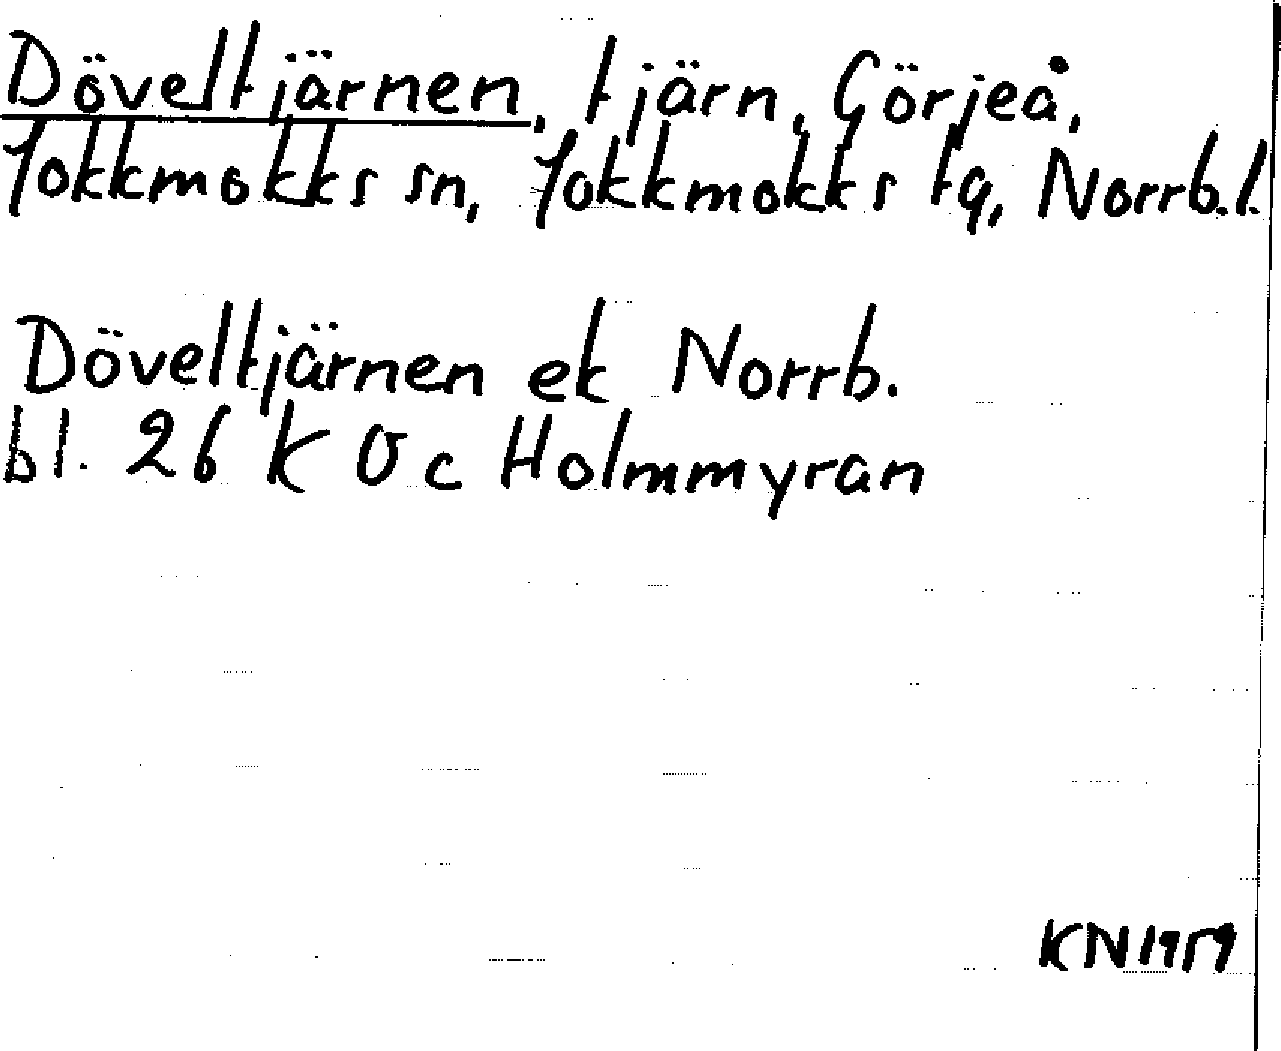 Döveltjärnen, tjärn, Görjeå,
Jokkmokks sn, Jokkmokks tg, Norrb.l.
Döveltjärnen ek Norrb.
bl. 26 K 0 c Holmmyran
KN 1959